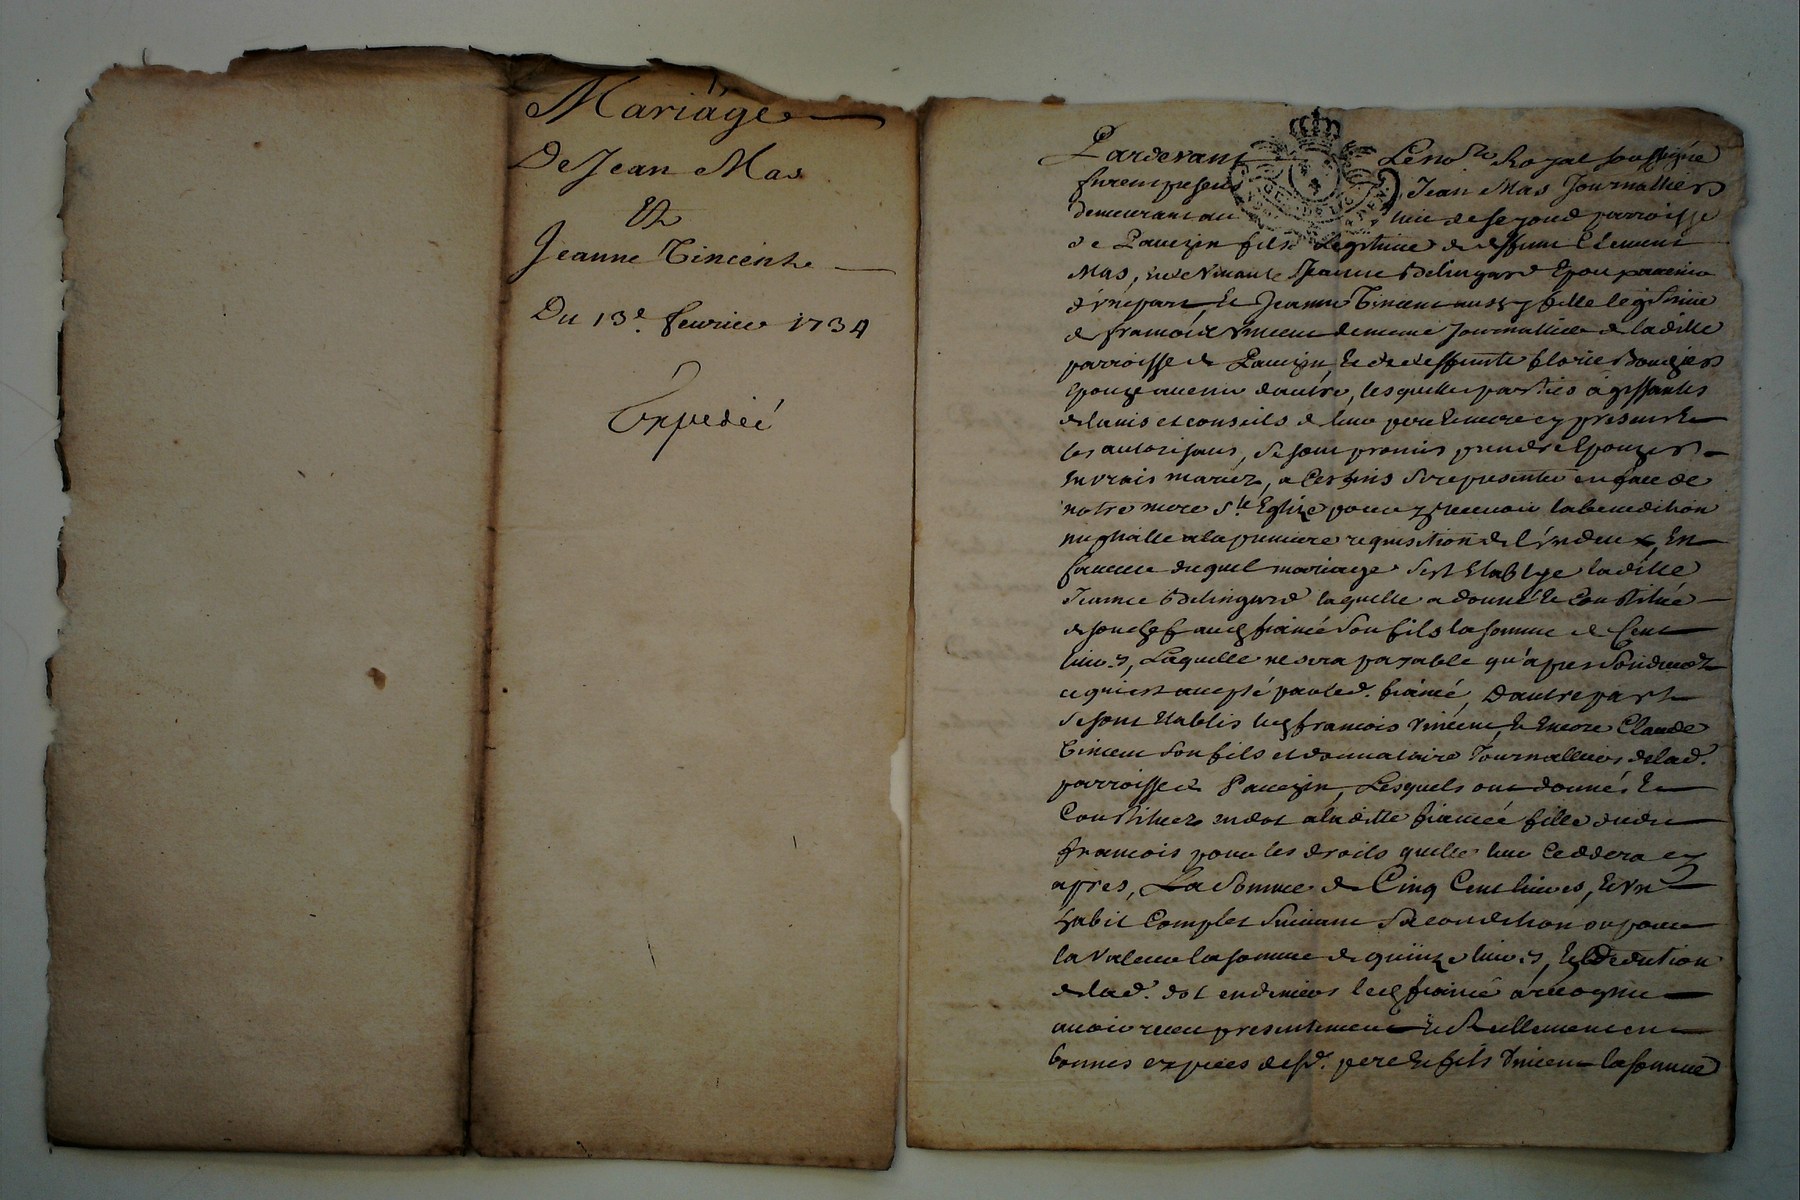 Mariage
De Jean Mas
Et
Jeanne Vincent
Du 13e. fevrier 1734
Expedié
Pardevant Le nore Royal soussigné
furent presens Jean Mas Journallier
demeurant au lieu de parroisse
de Pavezin fils Legitime de deffunt Clement
Mas, et de vivante Jeanne Epoux avenir
d'vne part, et Jeanne Vincent aussy fille legitime
de francois vincent de meme Journallier de la ditte
parroisse de Pavezin, et de deffunte florie
Epouze avenir d'autre, lesquelles parties agissantes
de lavis et conseils de leur pere et mere cy presents et
les autorisans, se sont promis prendre Epouzer
en vrais mariez, a ces fins se representer en face de
notre mere ste Eglize pour y recevoir la benediction
nuptialle a la premiere requisition de l'vn deux, En
faveur duquel mariage s'est Etablye laditte
Jeanne laquelle a donné et constitué
de son chef aud fiancé son fils la somme de Cent
livres, Laquelle ne sera payable qu'apres son deces
ce qui est accepté par led. fiancé, D'autre part
se sont Etablis led francois vincent, et Encore Claude
Vincent son fils et donnataire Journalliers de lad.
parroisse de Pavezin, Lesquels ont donnés et
Constituez en dot a laditte fiancée fille dudit
francois pour les droits quelle leur Ceddera cy
apres, La Somme de Cinq Cent livres, et vn
habit Complet suivant sa condition ou pour
la valeur la somme de quinze livres, et
de lad. dot en deniers led fiancé a
avoir receu presentement et Reellement en
bonnes expeces desd. pere et fils Vincent la somme